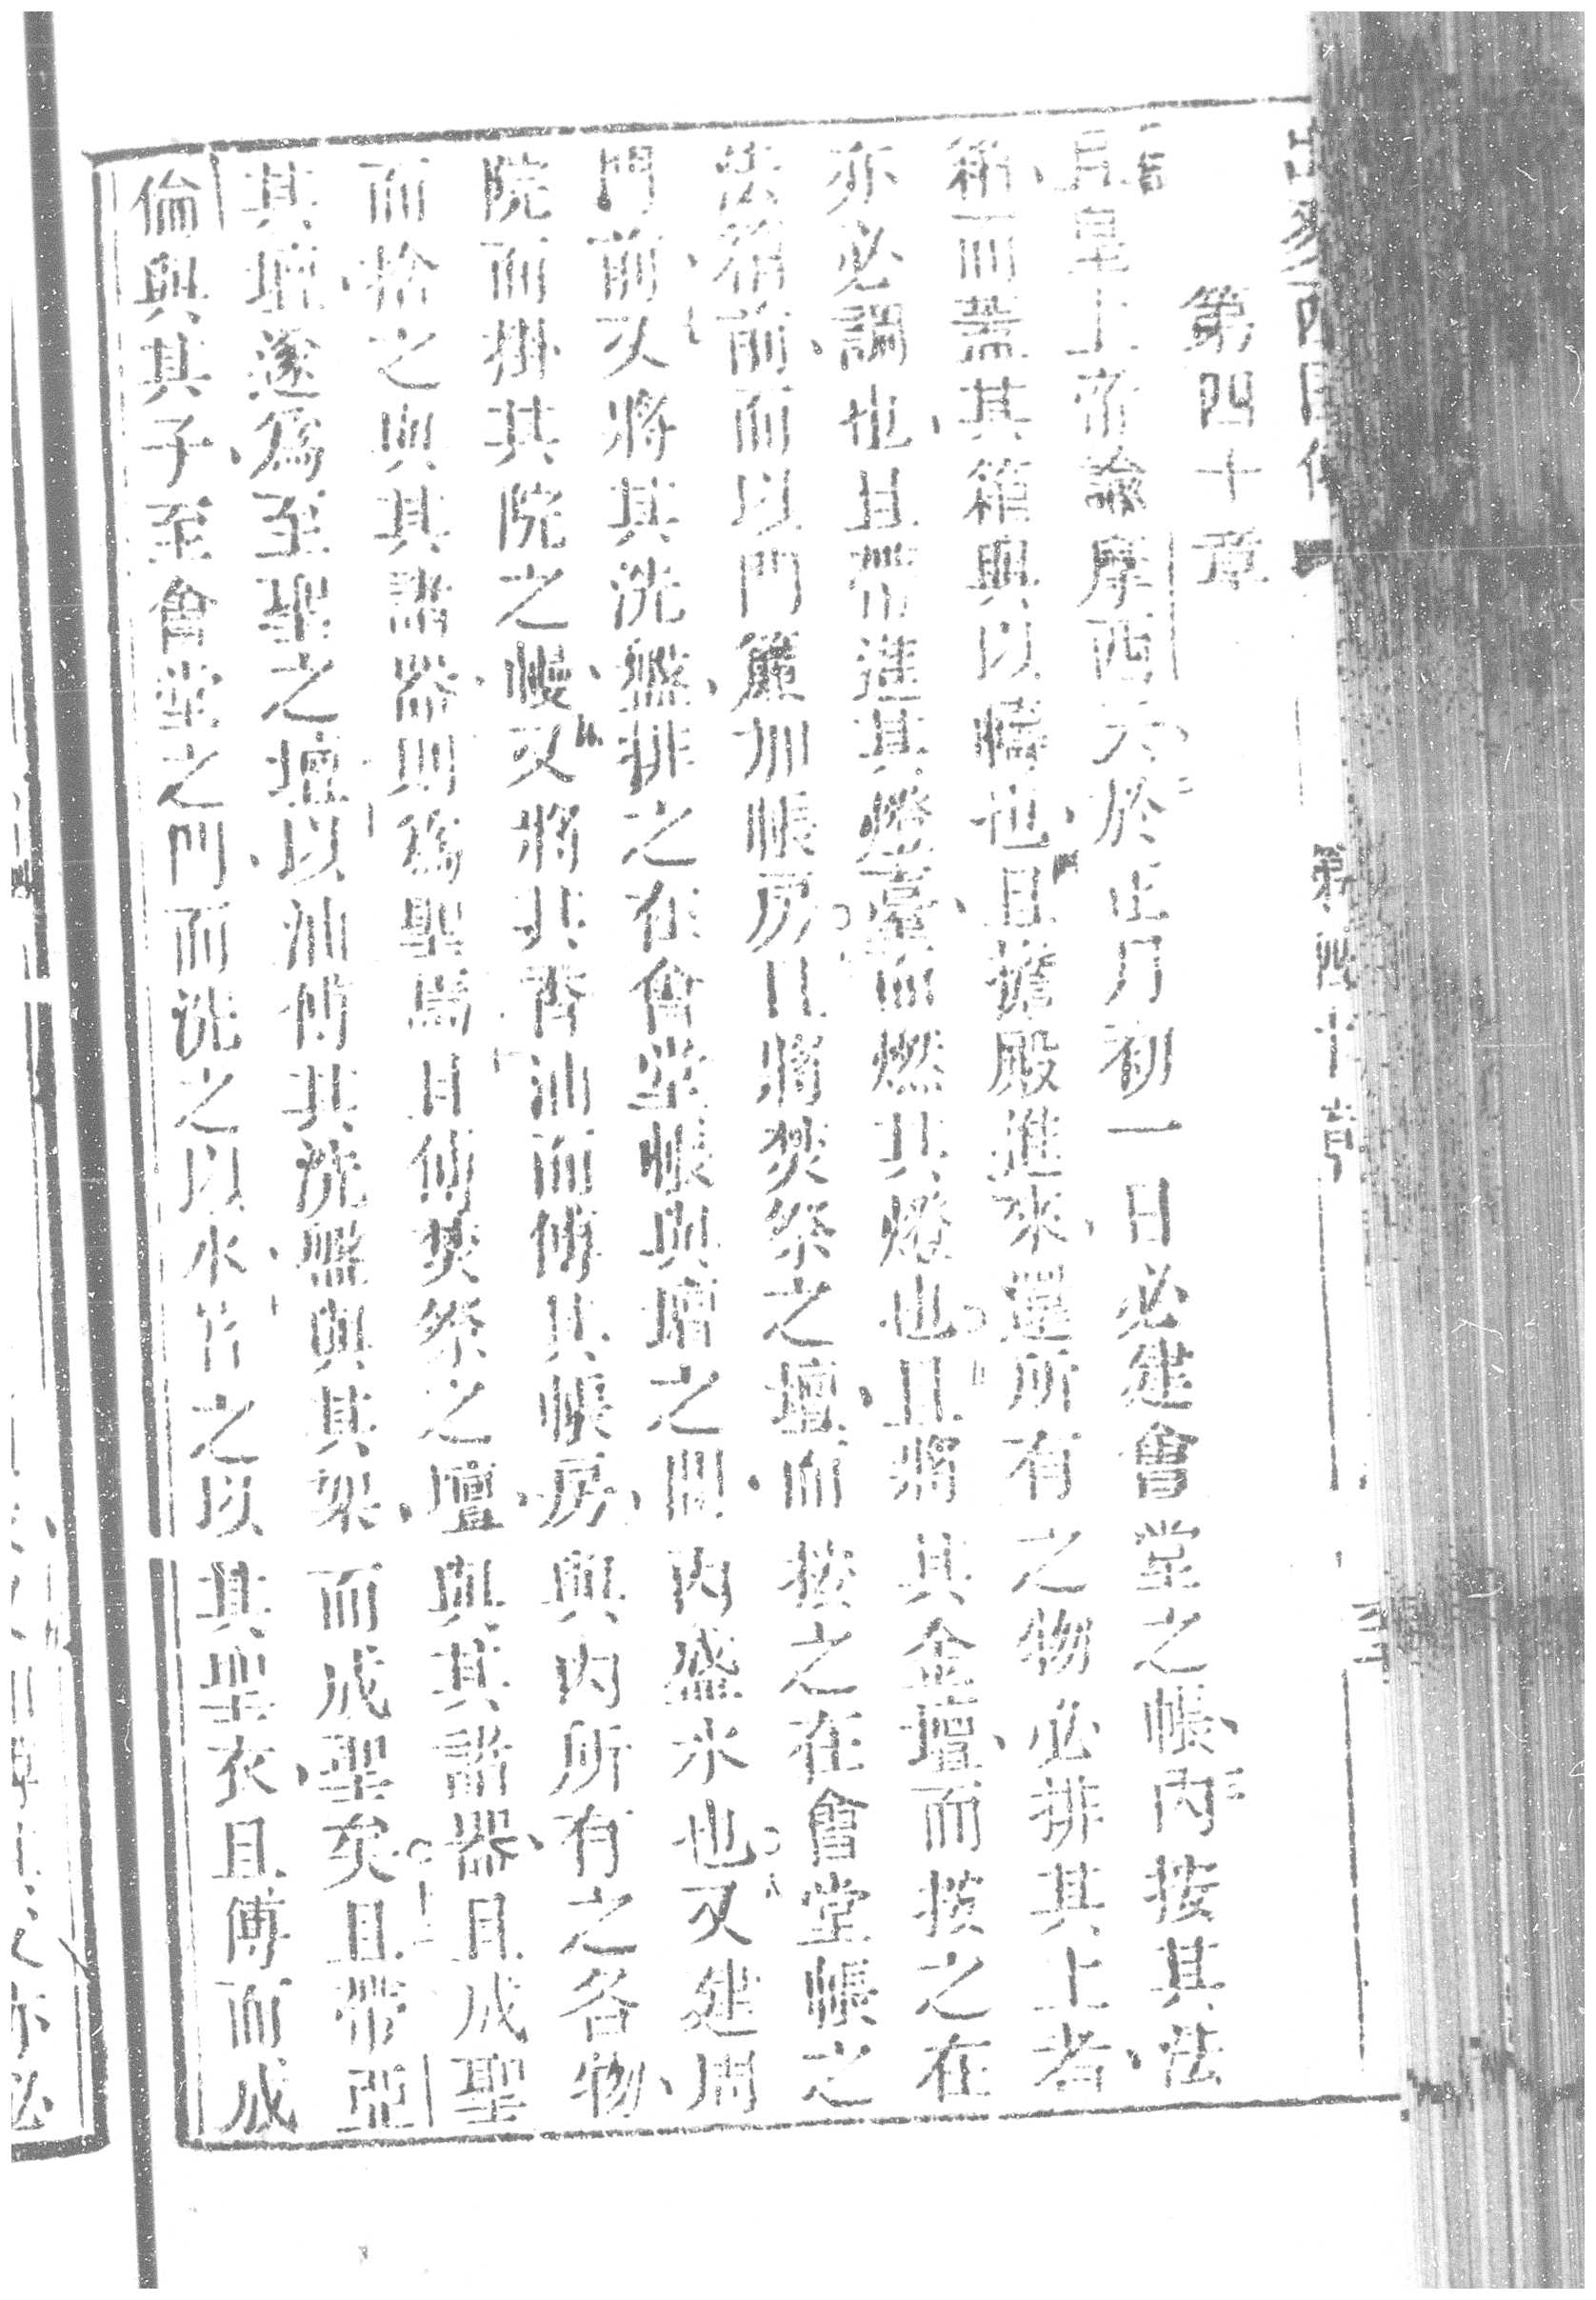 第四十章
且皇上帝諭摩西云於正月初一日必建會堂之帳內按其法
箱而蓋其箱與以幔也且擡殿進來還所有之物必排其上者
亦必調也且帶進其燈臺而燃其燈也且將其金壇而按之在
法箱前而以門簾加帳房且將焚祭之壇而按之在會堂帳之
門前又將其洗盤排之在會堂帳與壇之間內盛水也又建周
院而掛其院之幔又將其香油而傅其帳房與內所有之各物
而拾之與其諸器則為聖焉且傅焚祭之壇與其諸器且成聖
其壇遂為至聖之壇以油傅其洗盤與其架而成聖矣且帶亞
倫與其子至會堂之門而洗之以水 之以其聖衣且傅而成